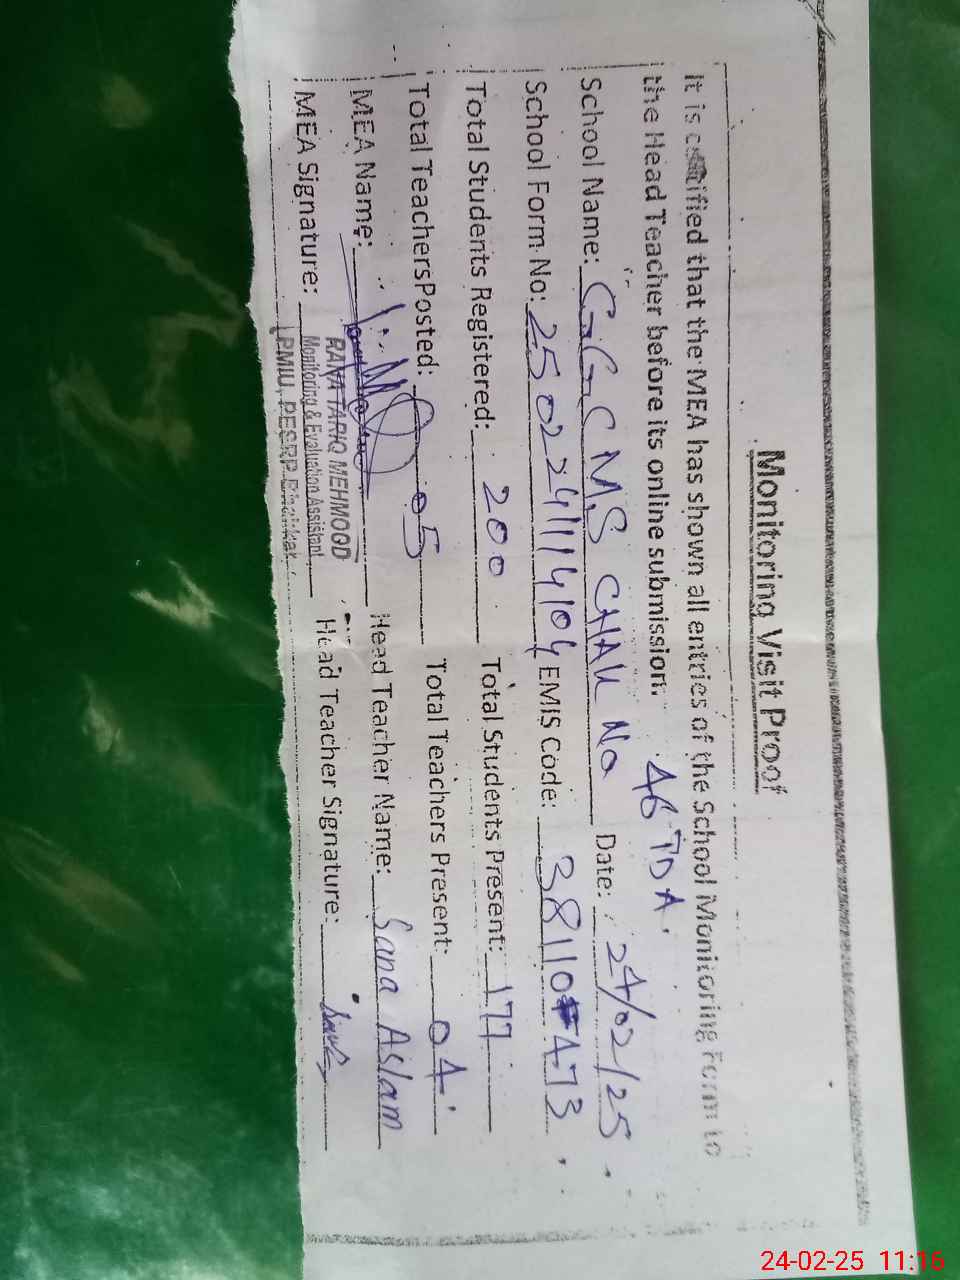 Monitoring Visit Proof
It is certified that the MEA has shown all entries of the School Monitoring Form to
the Head Teacher before its online submission.
46 TDA
School Name: GGCMS CHAK No Date: 24/02/25
School Form No: 2502241114104 EMIS Code: 38110473
Total Students Registered: 200 Total Students Present: 177
Total TeachersPosted: 05 Total Teachers Present: 04
MEA Name: Head Teacher Name: Sana Aslam
MEA Signature: Head Teacher Signature: Sana
RANA TARIQ MEHMOOD
Monitoring & Evaluation Assistant
PMIU, PESRP
24-02-25 11:16